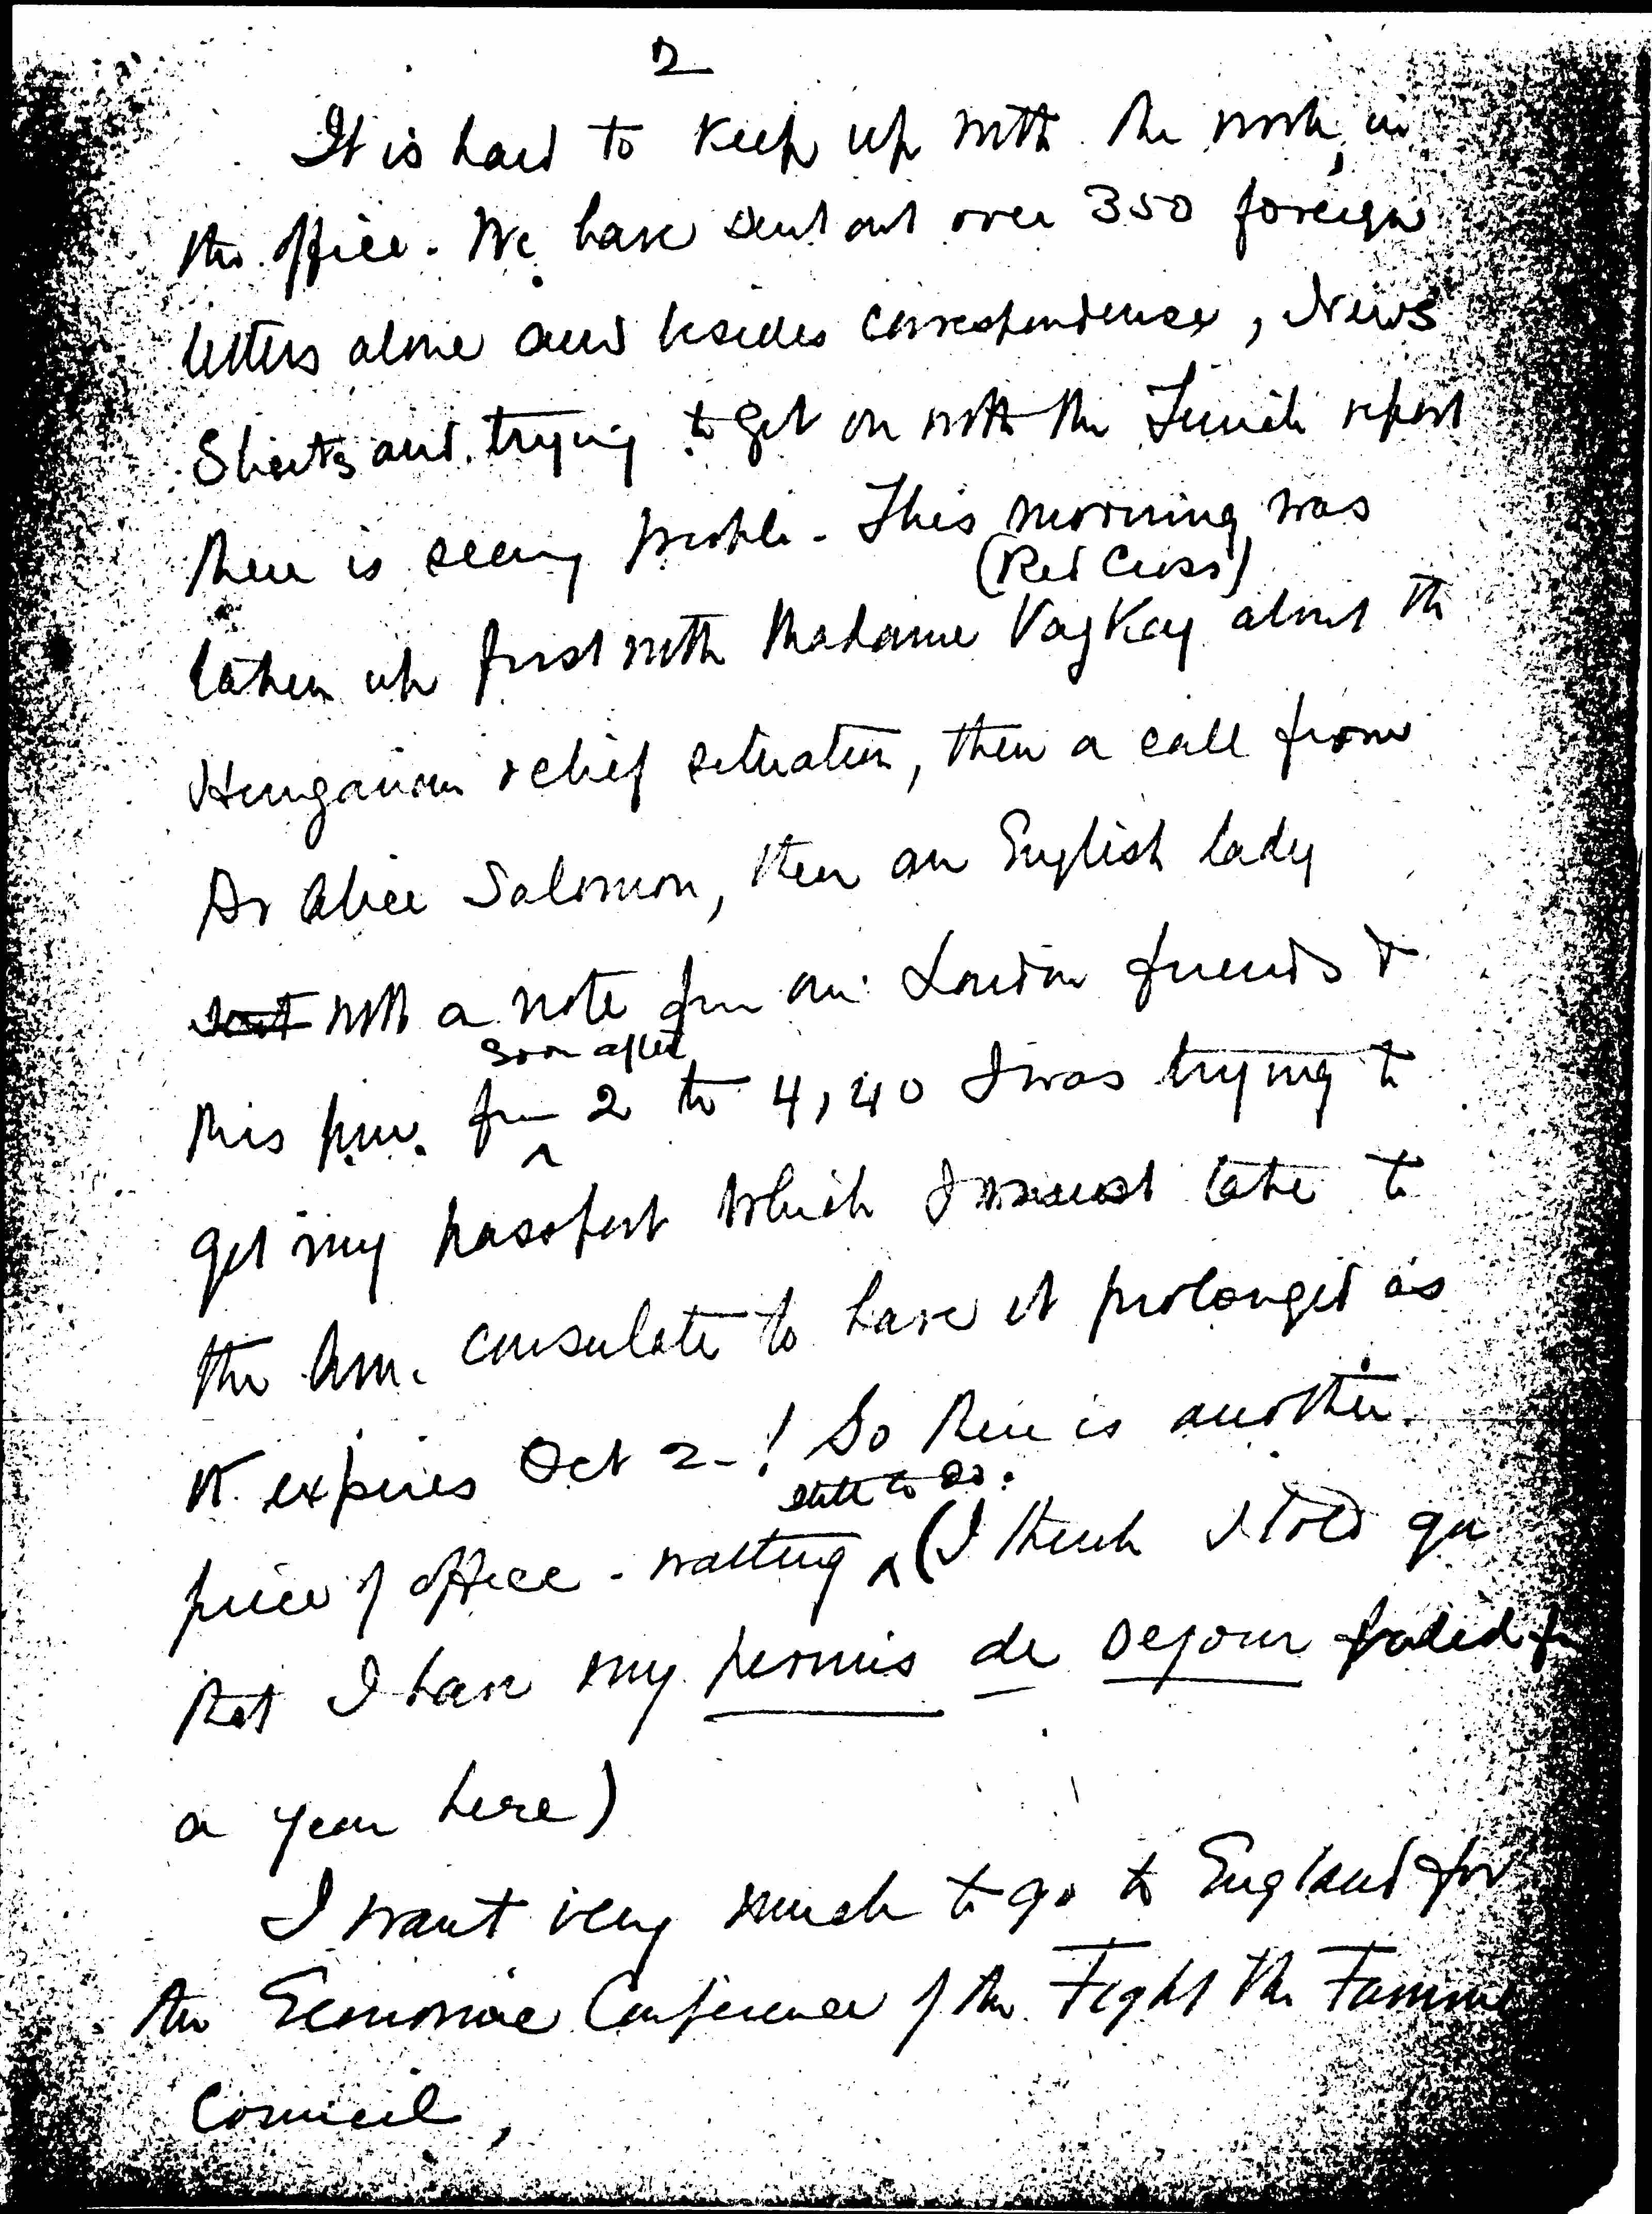 2
It is hard to keep up with the work in
the office. We have sent out over 350 foreign
letters alone and besides correspondence, News
Sheets and trying to get on with the Zurich report
there is seeing people. This morning was
(Red Cross)
taken up first with Madame Vay Kay about the
Hungarian relief situation, then a call from
Dr Alice Salomon, then an English lady
with a note from our London friends &
soon after
this p.m. from 2 to 4,40 I was trying to
get my passport which I must take to
the Am. consulate to have it prolonged as
it expires Oct 2-! So there is another
still to do.
piece of office-waiting (I think I told you
that I have my permis de sejour for
a year here)
I want very much to go to England for
the Economic Conference of the Fight the Famine
Council,